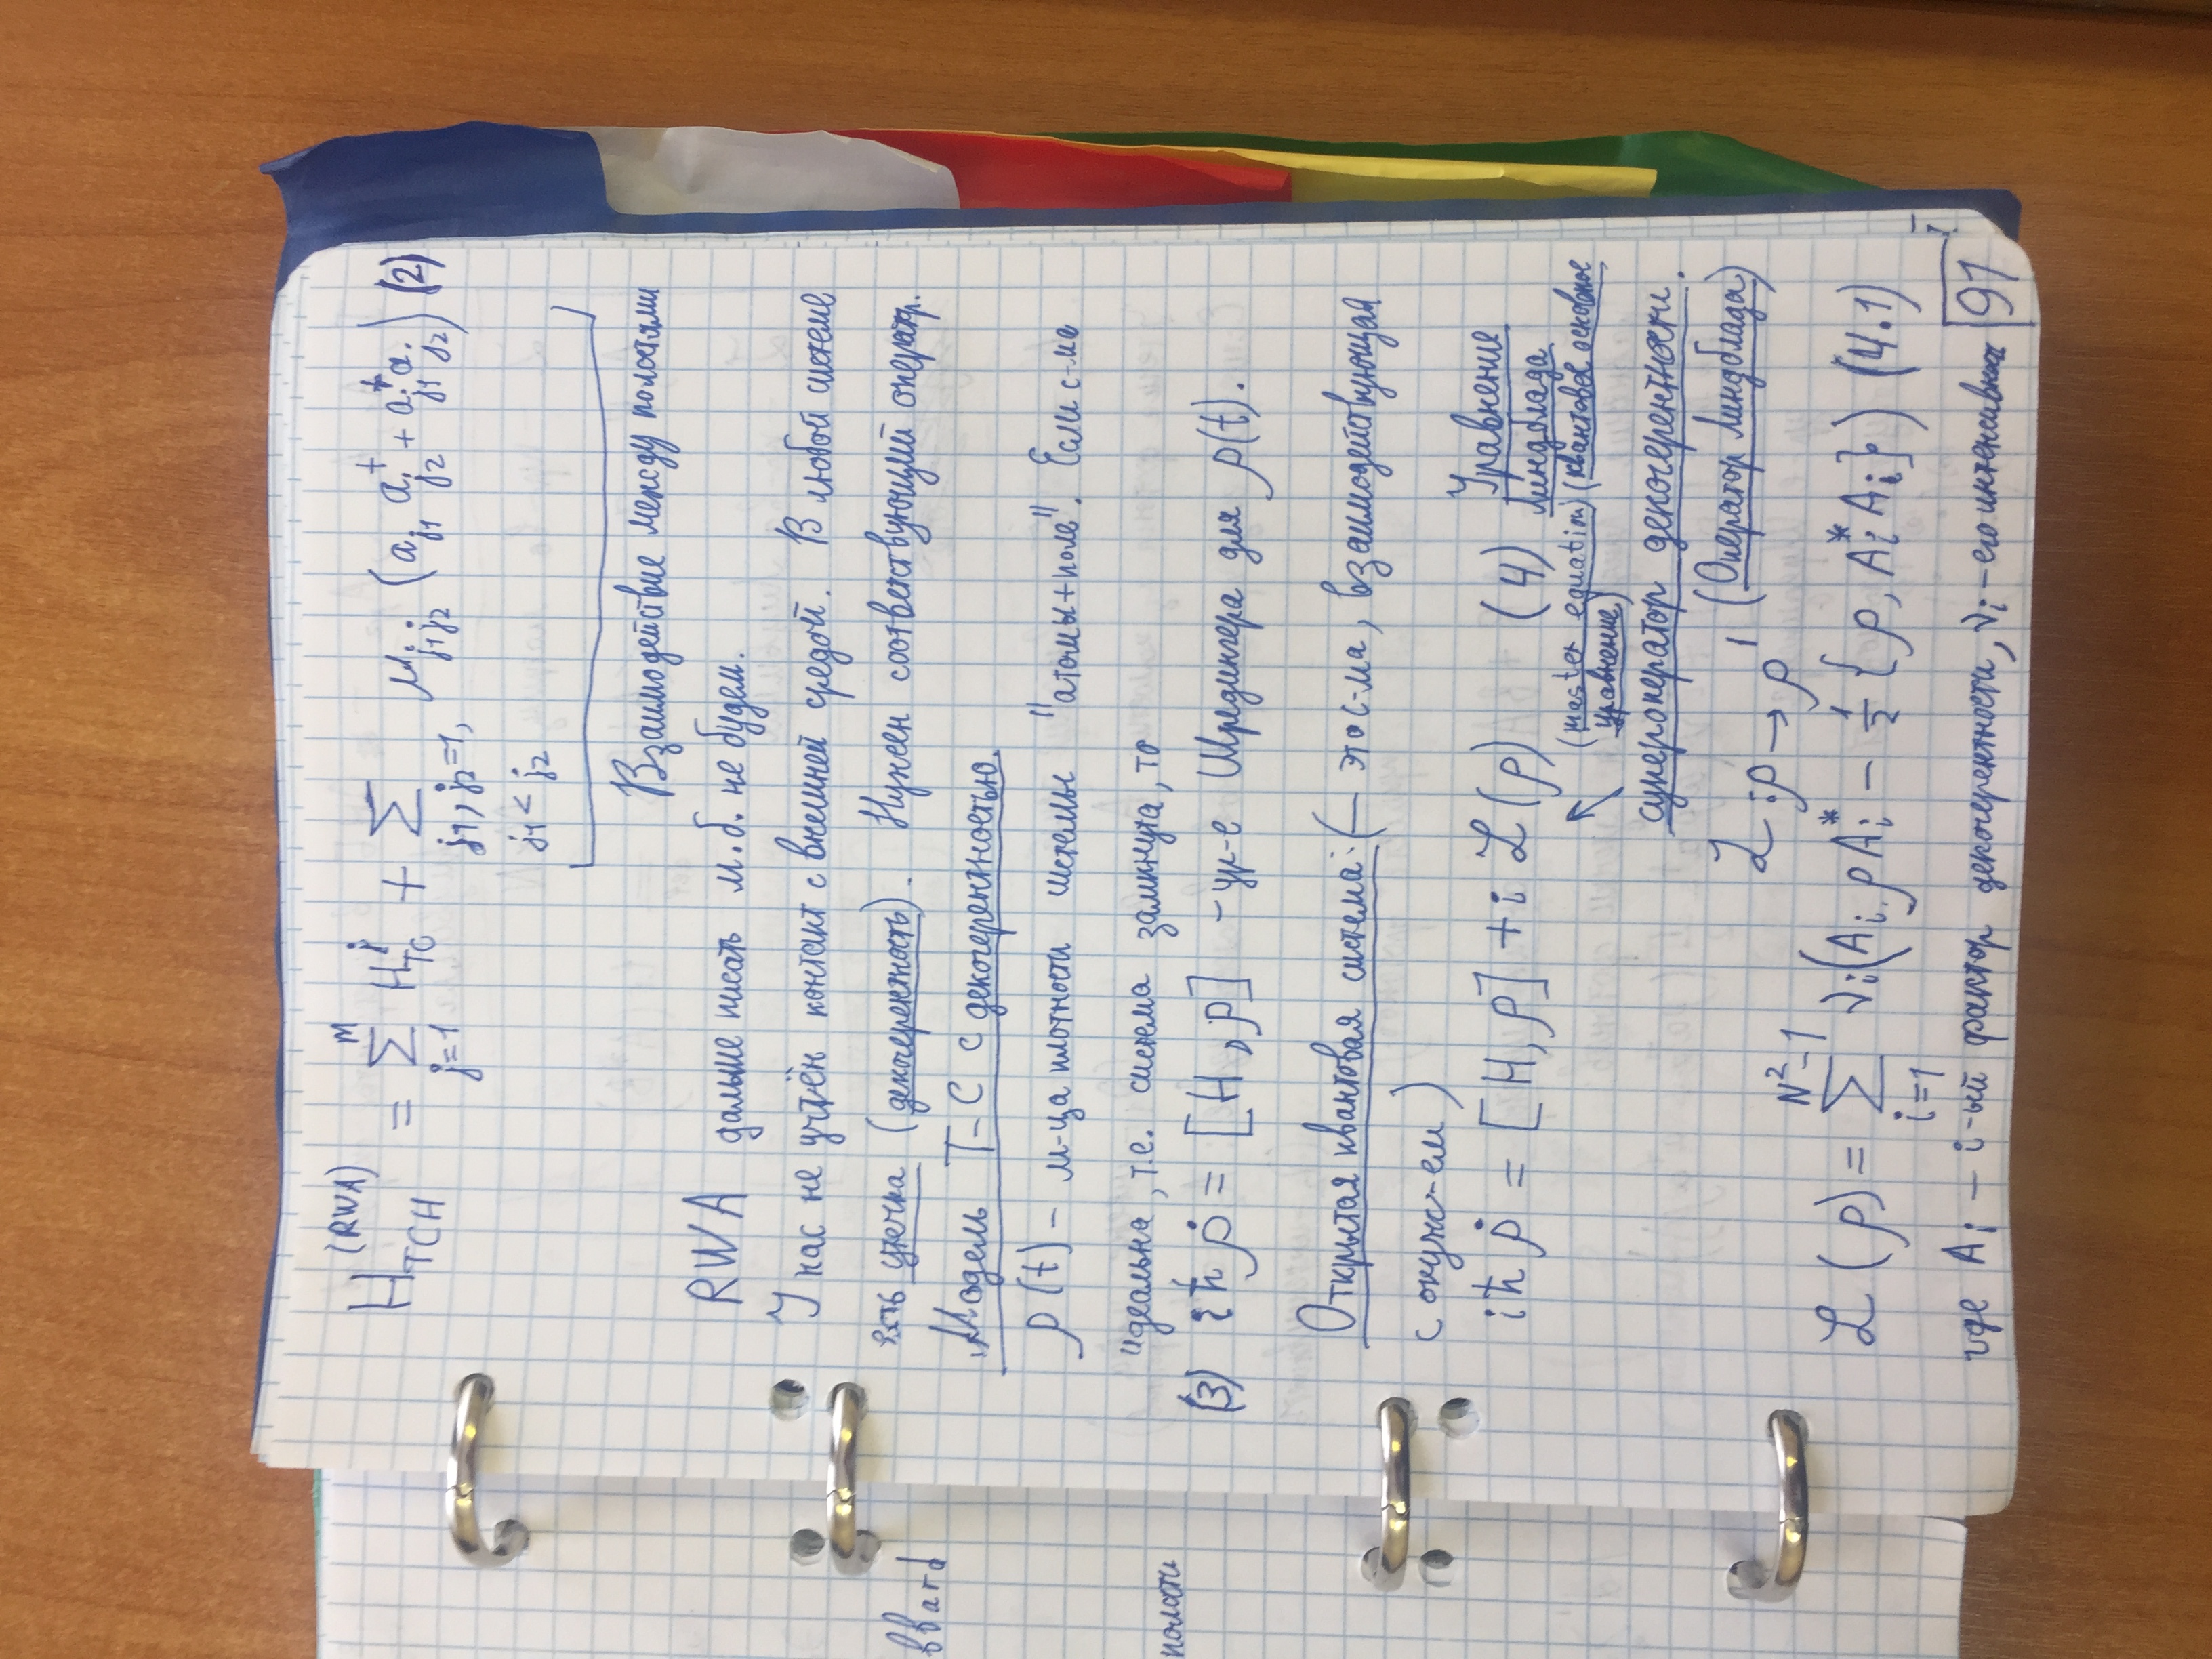 H_{TCH}^{(RWA)} = \sum_{j=1}^{m} H_{TC}^{j} + \sum_{j_1, j_2=1, j_1 < j_2} \mu_{j_1 j_2} (a_{j_1} a_{j_2}^{+} + a_{j_1}^{+} a_{j_2}) (2)
Взаимодействие между полостями
RWA дальше писать м.б. не будем.
У нас не учтён контакт с внешней средой. В любой системе
есть утечка (декогерентность). Нужен соответствующий оператр.
Модель T-C с декогерентностью.
ρ(t) – м-ца плотности системы "атомы+поле". Если с-ма
идеальна, т.е. система замкнута, то
(3) iħ ρ̇ = [H, ρ] – ур-е Шредингера для ρ(t).
Открытая квантовая система: (– это с-ма, взаимодействующая
с окруж-ем)
iħ ρ̇ = [H, ρ] + i ℒ(ρ) (4) Уравнение
Линдблада
(master equation) (квантовое основное
уравнение)
супероператор декогерентности.
(Оператор Линдблада)
ℒ : ρ → ρ'
ℒ(ρ) = \sum_{i=1}^{N^2-1} ν_i (A_i ρ A_i^* – \frac{1}{2} {ρ, A_i^* A_i}) (4.1)
где A_i – i-ый фактор декогерентности, ν_i – его интенсивность
91
bbard
полости